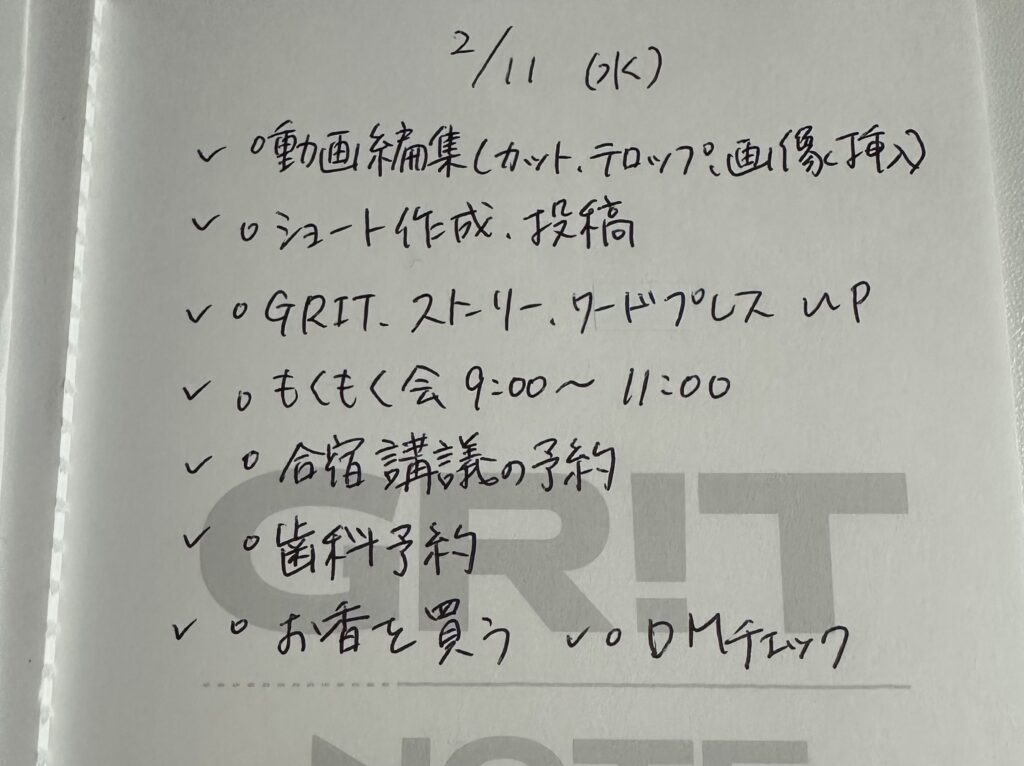 2/11 (水)
✓ ○動画編集(カット、テロップ、画像挿入)
✓ ○ショート作成、投稿
✓ ○GRIT、ストーリー、ワードプレス UP
✓ ○もくもく会 9:00～11:00
✓ ○合宿講議の予約
✓ ○歯科予約
GRIT
✓ ○お香を買う ✓ ○DMチェック
NOTE